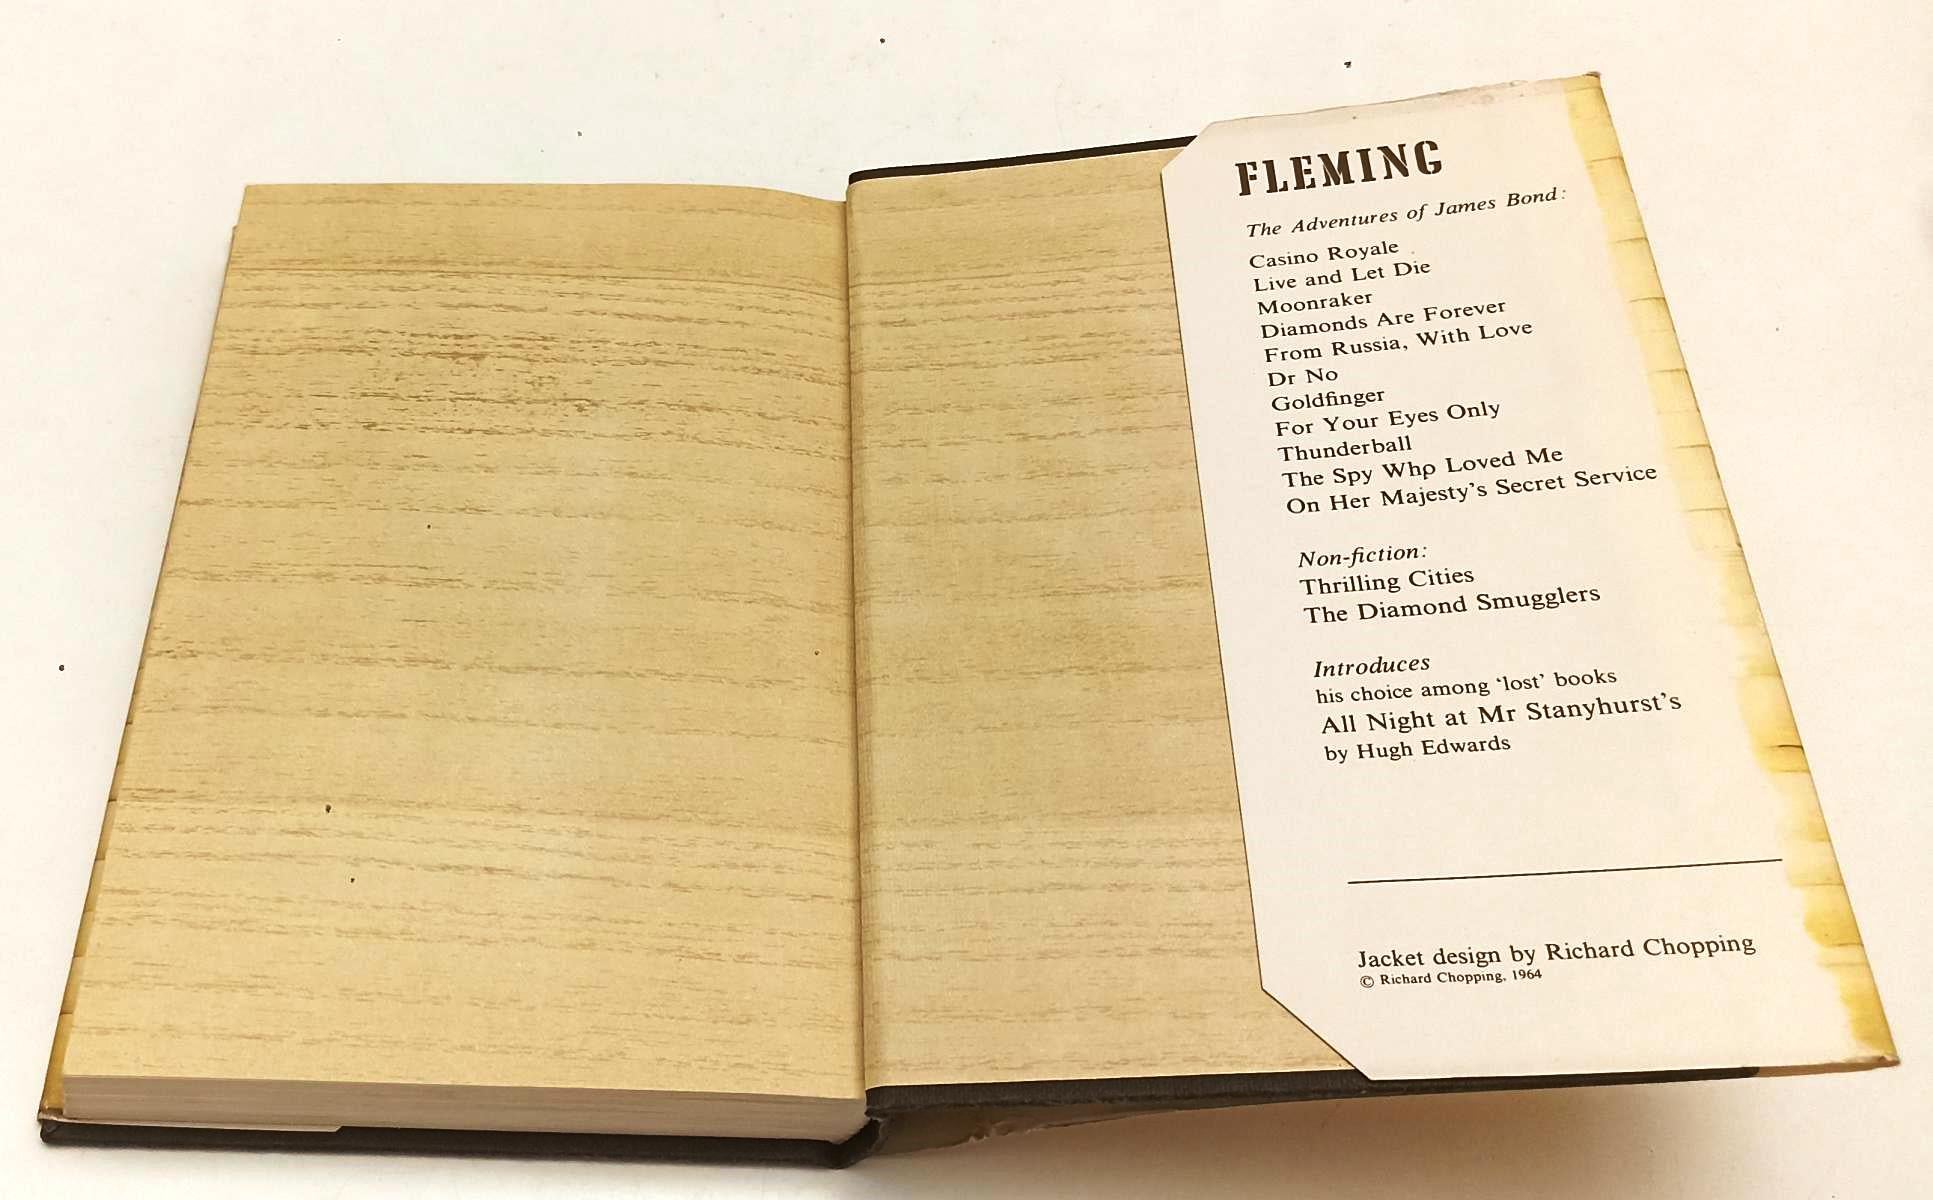 FLEMING
The Adventures of James Bond:
Casino Royale
Live and Let Die
Moonraker
Diamonds Are Forever
From Russia, With Love
Dr No
Goldfinger
For Your Eyes Only
Thunderball
The Spy Who Loved Me
On Her Majesty's Secret Service
Non-fiction:
Thrilling Cities
The Diamond Smugglers
Introduces
his choice among ‘lost’ books
All Night at Mr Stanyhurst's
by Hugh Edwards
Jacket design by Richard Chopping
© Richard Chopping, 1964